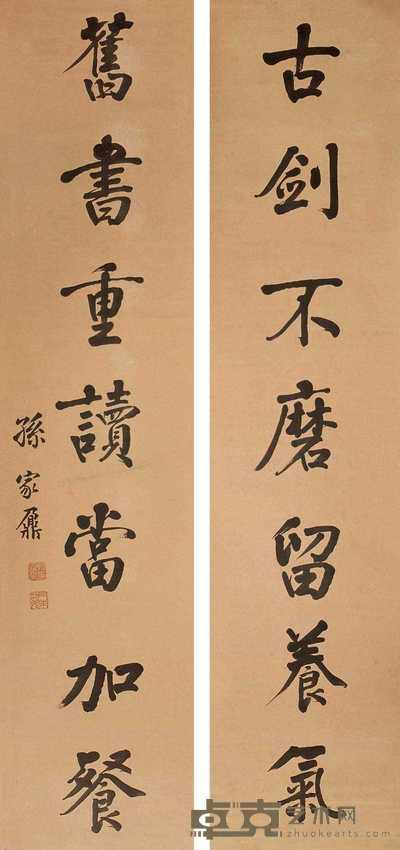 古劍不磨留養氣
舊書重讀當加餐
孫家鼐
卓克艺术网
zhuokearts.com